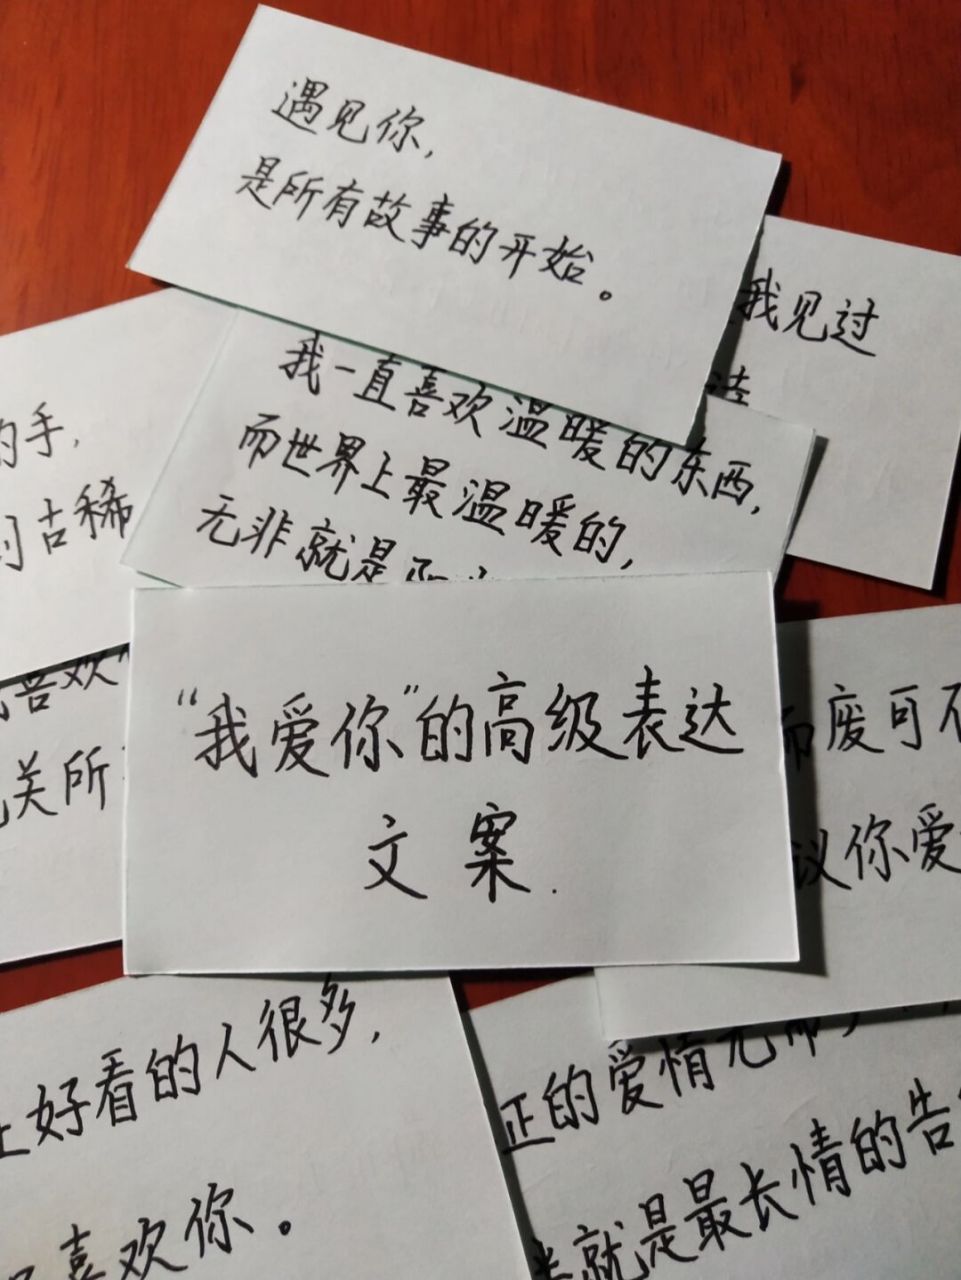 遇见你,
是所有故事的开始。
我见过
我一直喜欢温暖的东西,
而世界上最温暖的,
无非就是
的手,
古稀
喜欢
关所
“我爱你”的高级表达
文案.
而废可不
议你爱
上好看的人很多,
喜欢你。
正的爱情无
就是最长情的告